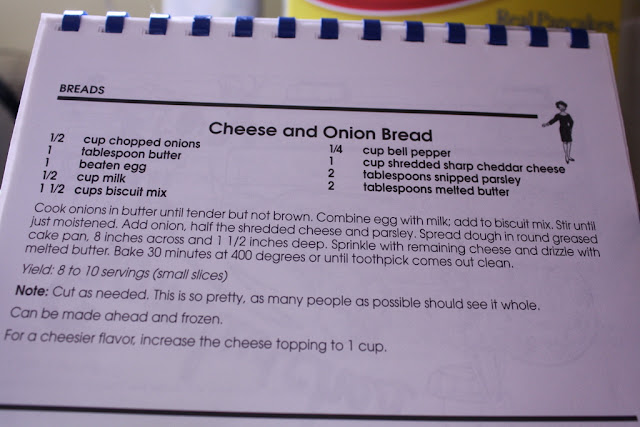 Real Pancakes
BREADS
Cheese and Onion Bread
1/2 cup chopped onions
1 tablespoon butter
1 beaten egg
1/2 cup milk
1 1/2 cups biscuit mix
1/4 cup bell pepper
1 cup shredded sharp cheddar cheese
2 tablespoons snipped parsley
2 tablespoons melted butter
Cook onions in butter until tender but not brown. Combine egg with milk; add to biscuit mix. Stir until
just moistened. Add onion, half the shredded cheese and parsley. Spread dough in round greased
cake pan, 8 inches across and 1 1/2 inches deep. Sprinkle with remaining cheese and drizzle with
melted butter. Bake 30 minutes at 400 degrees or until toothpick comes out clean.
Yield: 8 to 10 servings (small slices)
Note: Cut as needed. This is so pretty, as many people as possible should see it whole.
Can be made ahead and frozen.
For a cheesier flavor, increase the cheese topping to 1 cup.